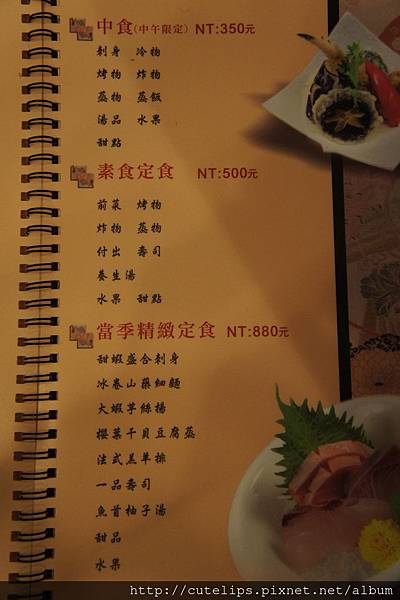 中食(中午限定) NT:350元
刺身 冷物
烤物 炸物
蒸物 蒸飯
湯品 水果
甜點
素食定食 NT:500元
前菜 烤物
炸物 蒸物
付出 壽司
養生湯
水果 甜點
當季精緻定食 NT:880元
甜蝦盛合刺身
冰卷山藥細麵
大蝦芋絲揚
櫻葉干貝豆腐蒸
法式羔羊排
一品壽司
魚首柚子湯
甜品
水果
http://cutelips.pixnet.net/album